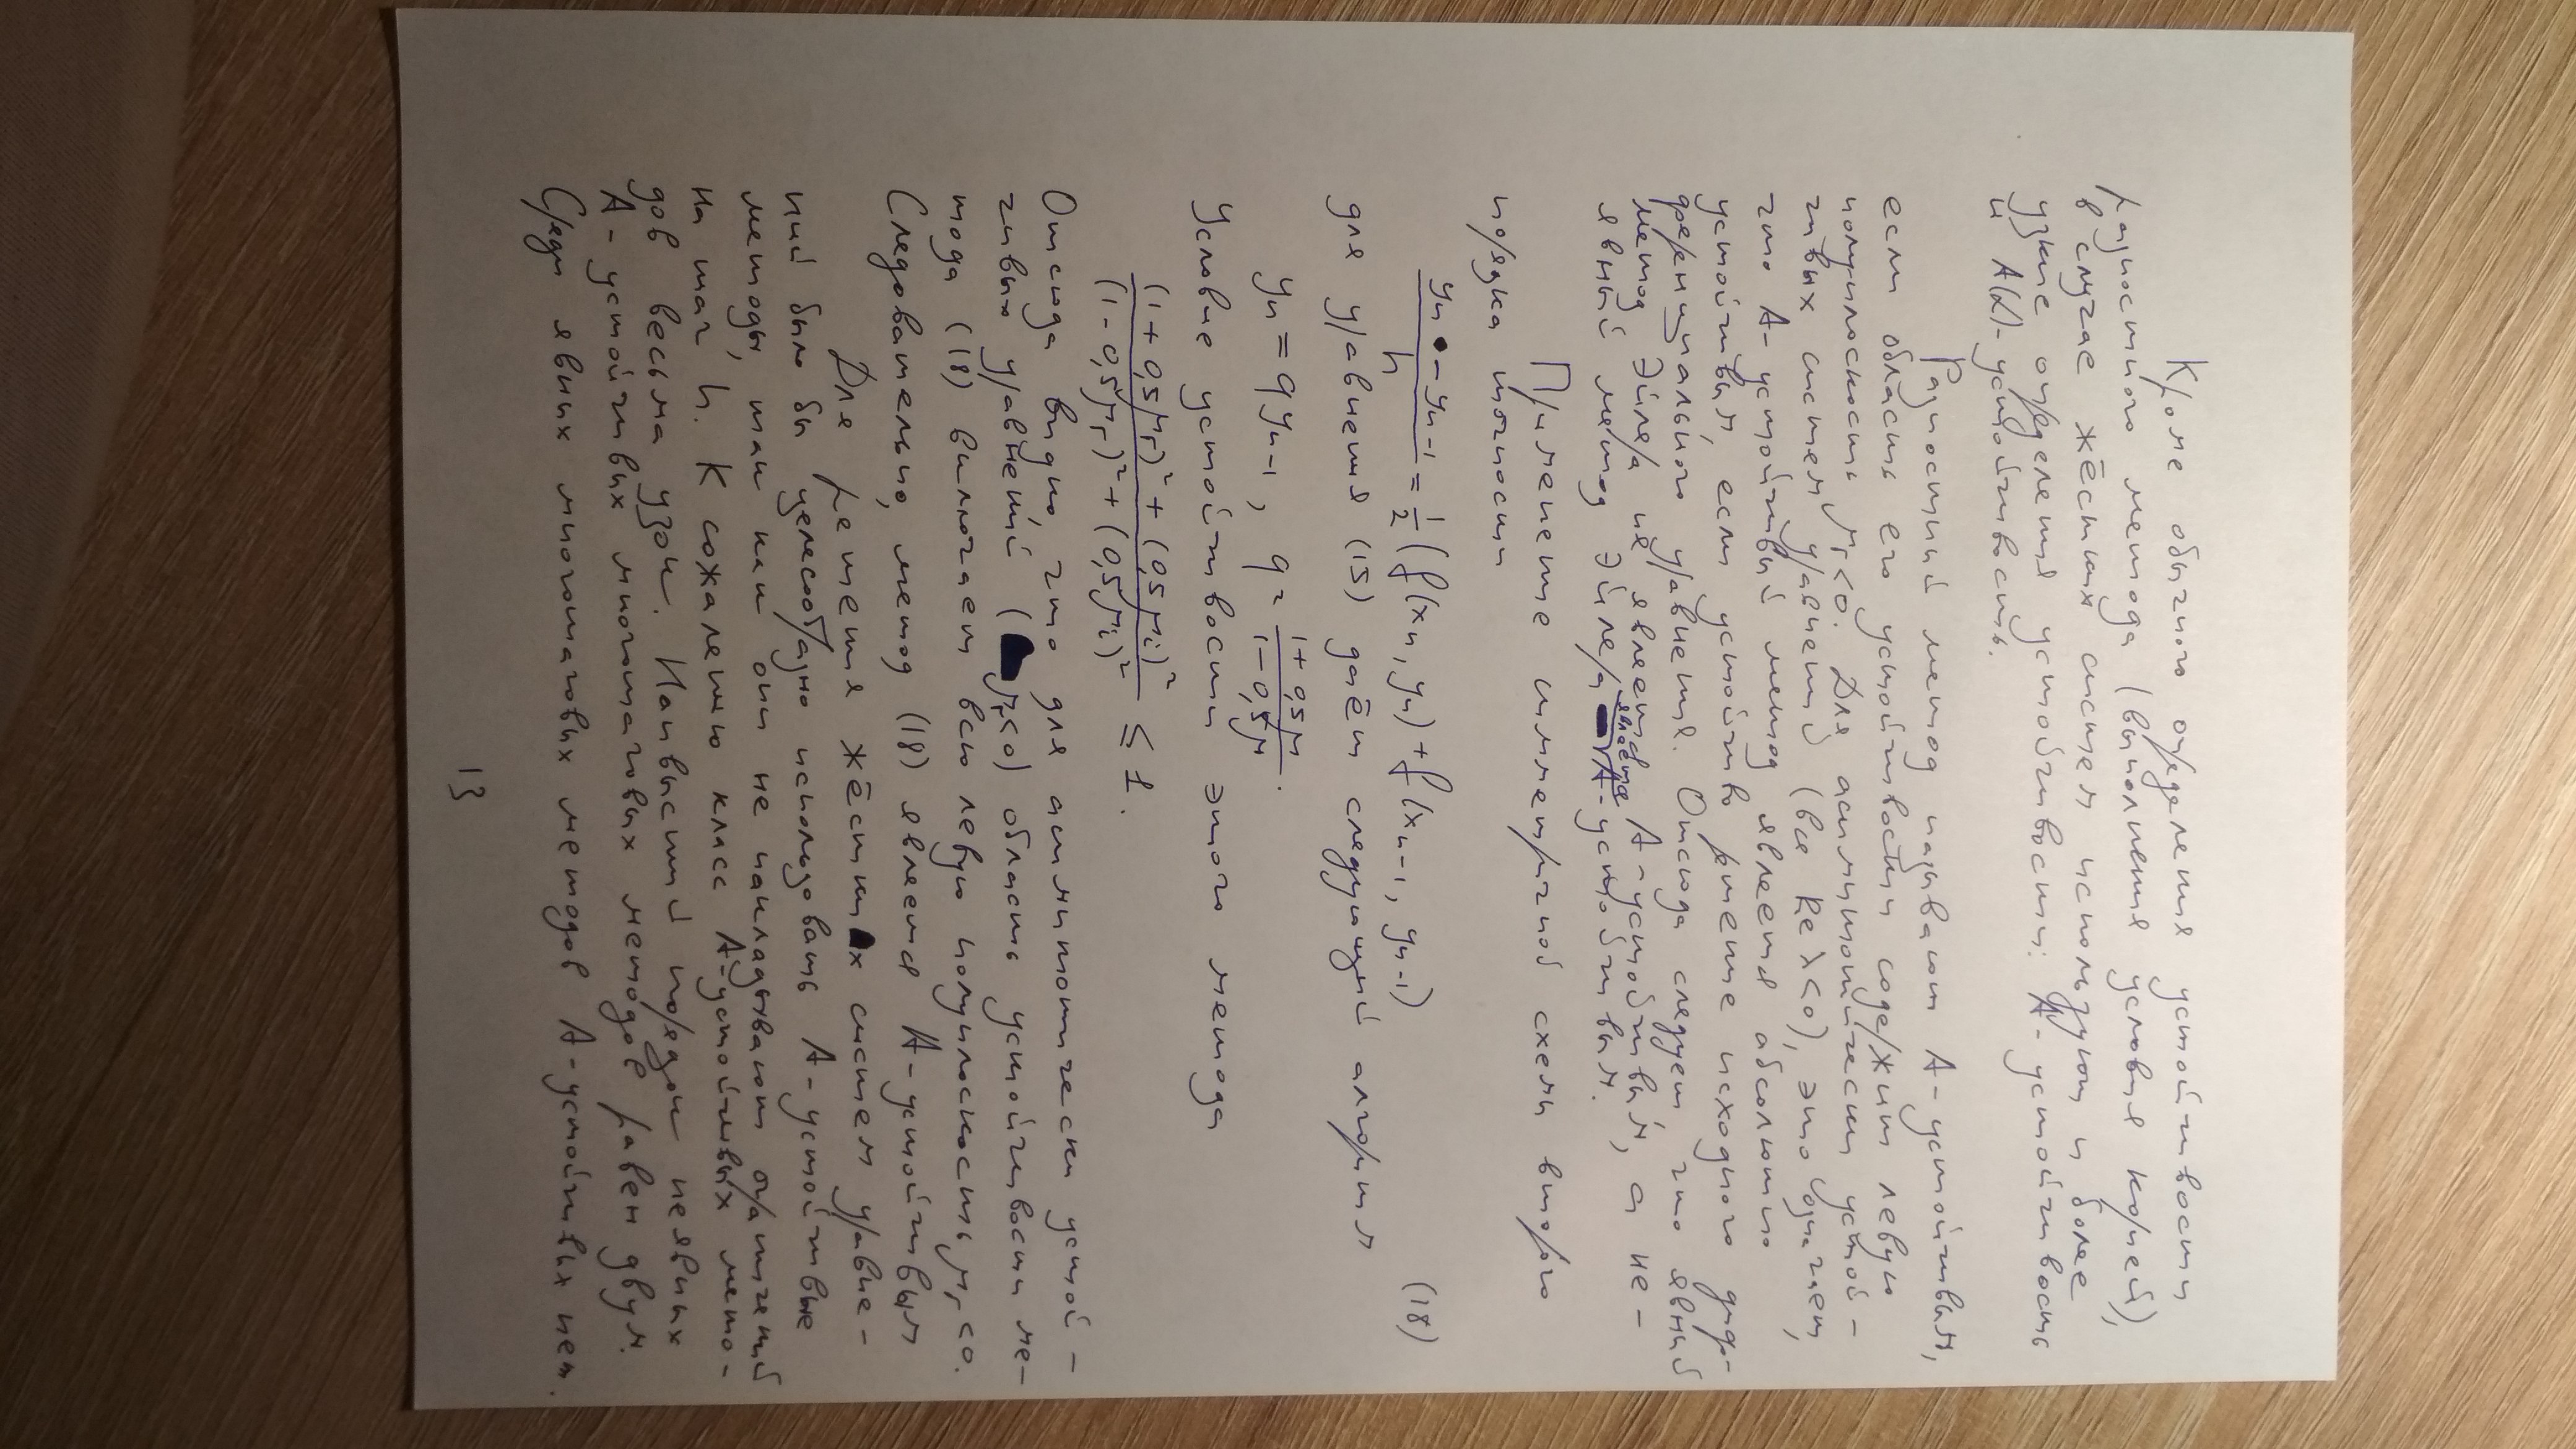 Кроме обычного определения устойчивости
разностного метода (выполнения условия корней),
в случае жёстких систем используют и более
узкие определения устойчивости: А-устойчивость
и А(α)-устойчивость.
Разностный метод называют А-устойчивым,
если область его устойчивости содержит левую
полуплоскость μr<0. Для асимптотически устой-
чивых систем уравнений (все Re λ<0), это означает,
что А-устойчивый метод является абсолютно
устойчивым, если устойчиво решение исходного диф-
ференциального уравнения. Отсюда следует, что явный
метод Эйлера не является А-устойчивым, а не-
явный метод Эйлера является А-устойчивым.
Применение симметричной схемы второго
порядка точности
(yn - yn-1)/h = 1/2 (f(xn, yn) + f(xn-1, yn-1) (18)
для уравнения (15) даёт следующий алгоритм
yn = q yn-1, q = (1 + 0,5μ)/(1 - 0,5μ).
Условие устойчивости этого метода
((1 + 0,5μr)² + (0,5μi)²)/((1 - 0,5μr)² + (0,5μi)²) ≤ 1.
Отсюда видно, что для асимптотически устой-
чивых уравнений (μr<0) область устойчивости ме-
тода (18) включает всю левую полуплоскость μr<0.
Следовательно, метод (18) является А-устойчивым
Для решения жёстких систем уравне-
ний было бы целесообразно использовать А-устойчивые
методы, так как они не накладывают ограничений
на шаг h. К сожалению класс А-устойчивых мето-
дов весьма узок. Наивысший порядок неявных
А-устойчивых многошаговых методов равен двум.
Среди явных многошаговых методов А-устойчивых нет.
13